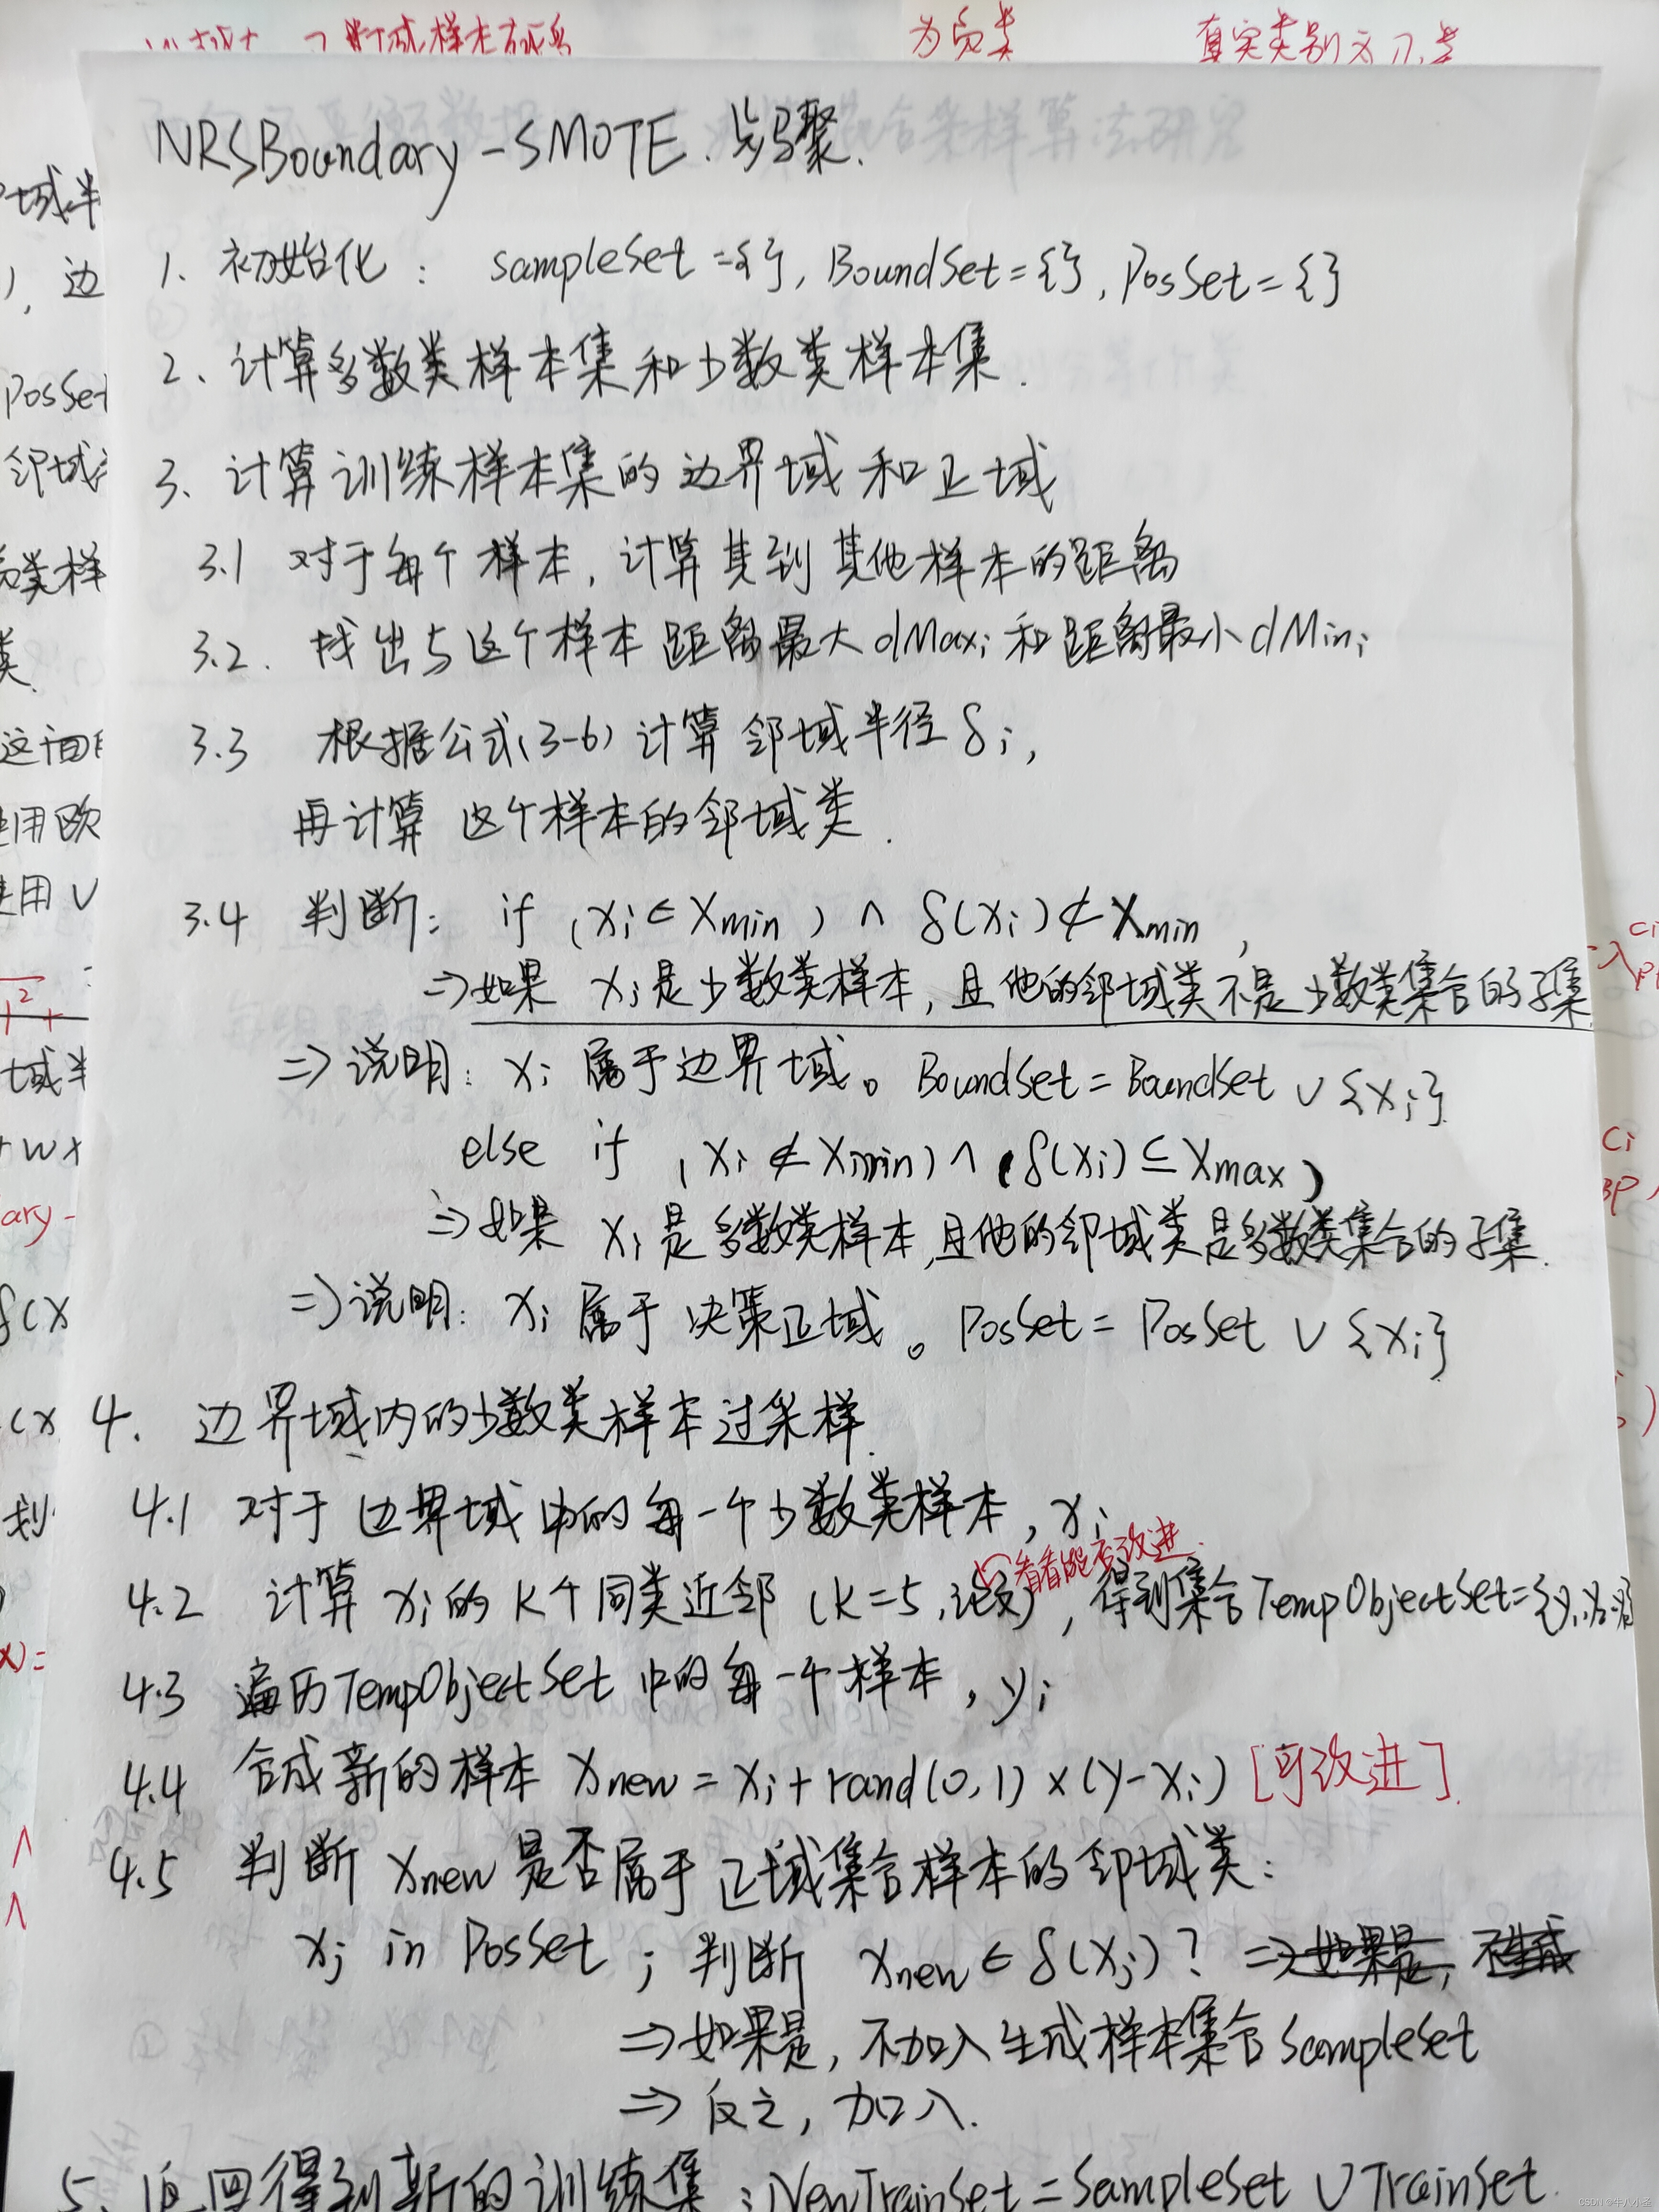 为负类 真实类别为
NRSBoundary-SMOTE.步骤.
1. 初始化: sampleSet={}, BoundSet={}, PosSet={}
2、计算多数类样本集和少数类样本集.
3. 计算训练样本集的边界域和正域
3.1 对于每个样本, 计算其到其他样本的距离
3.2. 找出与这个样本距离最大dMaxi和距离最小dMini
3.3 根据公式(3-6)计算邻域半径δi,
再计算这个样本的邻域类.
3.4 判断: if (xi∈Xmin) ∧ δ(xi)⊄Xmin,
⇒如果 xi是少数类样本, 且他的邻域类不是少数类集合的子集
⇒说明: xi属于边界域。BoundSet=BoundSet∪{xi}
else if (xi∉Xmin)∧(δ(xi)⊆Xmax)
⇒如果 xi是多数类样本,且他的邻域类是多数类集合的子集.
⇒说明: xi属于决策正域。PosSet=PosSet∪{xi}
4. 边界域内的少数类样本过采样.
4.1 对于边界域中的每一个少数类样本, xi
看看能否改进.
4.2 计算xi的K个同类近邻(K=5,论文), 得到集合TempObjectSet={y1,y2
4.3 遍历TempObjectSet中的每一个样本, yi
4.4 合成新的样本 xnew=xi+rand(0,1)×(y-xi) [可改进].
4.5 判断xnew是否属于正域集合样本的邻域类:
xj in PosSet; 判断 xnew∈δ(xj)? ⇒如果是, 不生成
⇒如果是, 不加入生成样本集合SampleSet
⇒反之, 加入.
5、返回得到新的训练集: NewTrainSet=SampleSet∪TrainSet.
域半
, 边
PosSet
邻域
类样
类
这
用欧
用
域半
ary-
δ(x
(x
划
ci
ci
CSDN @牛八小圣